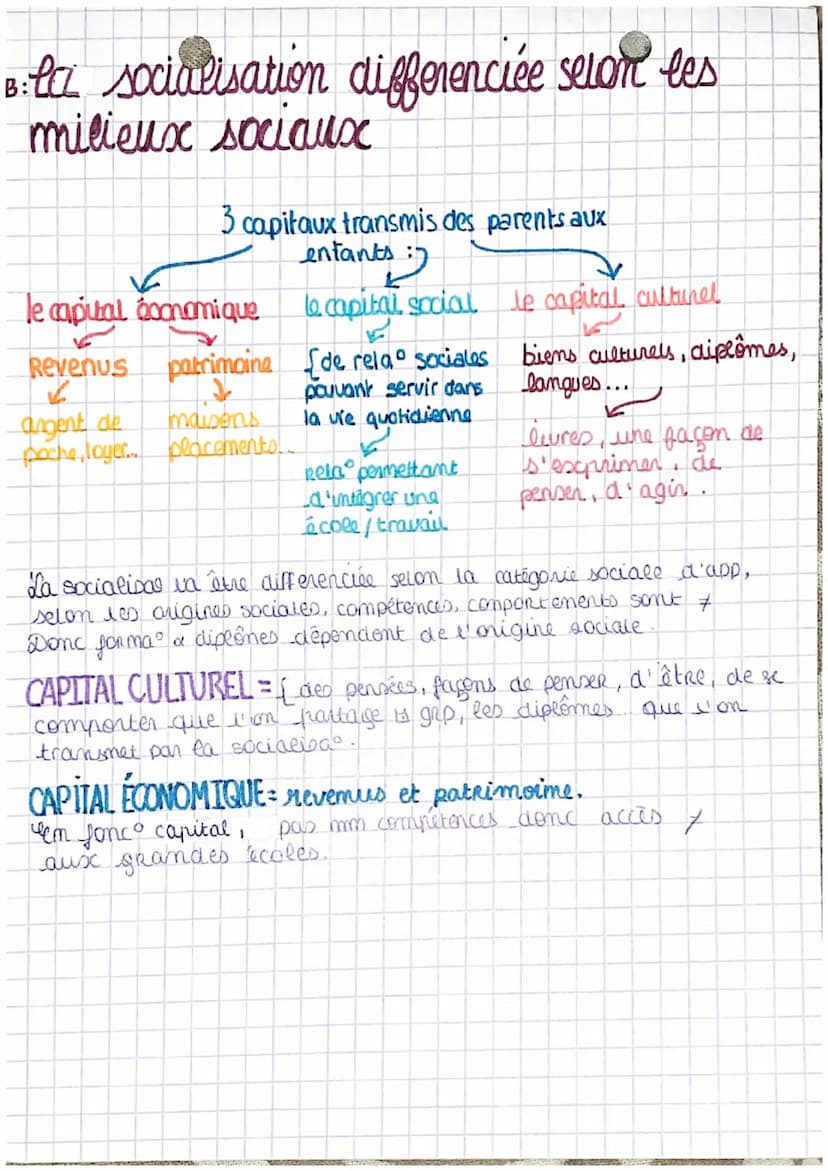 B: la socialisation differenciée selon les
milieux sociaux
3 capitaux transmis des parents aux
enfants :
le capital économique
Revenus
patrimoine
argent de
poche, loyer...
maisons
placements...
le capital social
{ de rela° sociales
pouvant servir dans
la vie quotidienne
rela° permettant
d'intégrer une
école/travail
le capital culturel
biens culturels, diplômes,
langues...
livres, une façon de
s'exprimer, de
penser, d'agir.
La socialisa° va être differenciée selon la catégorie sociale d'app,
selon les origines sociales, compétences, comportements sont ≠
Donc forma° & diplômes dépendent de l'origine sociale.
CAPITAL CULTUREL = { des pensées, façons de penser, d'être, de se
comporter que l'on partage grp, les diplômes que l'on
transmet par la socialisa°.
CAPITAL ÉCONOMIQUE = revenus et patrimoine.
en fonc° capital, pas mm compétences donc accès ≠
aux grandes écoles.